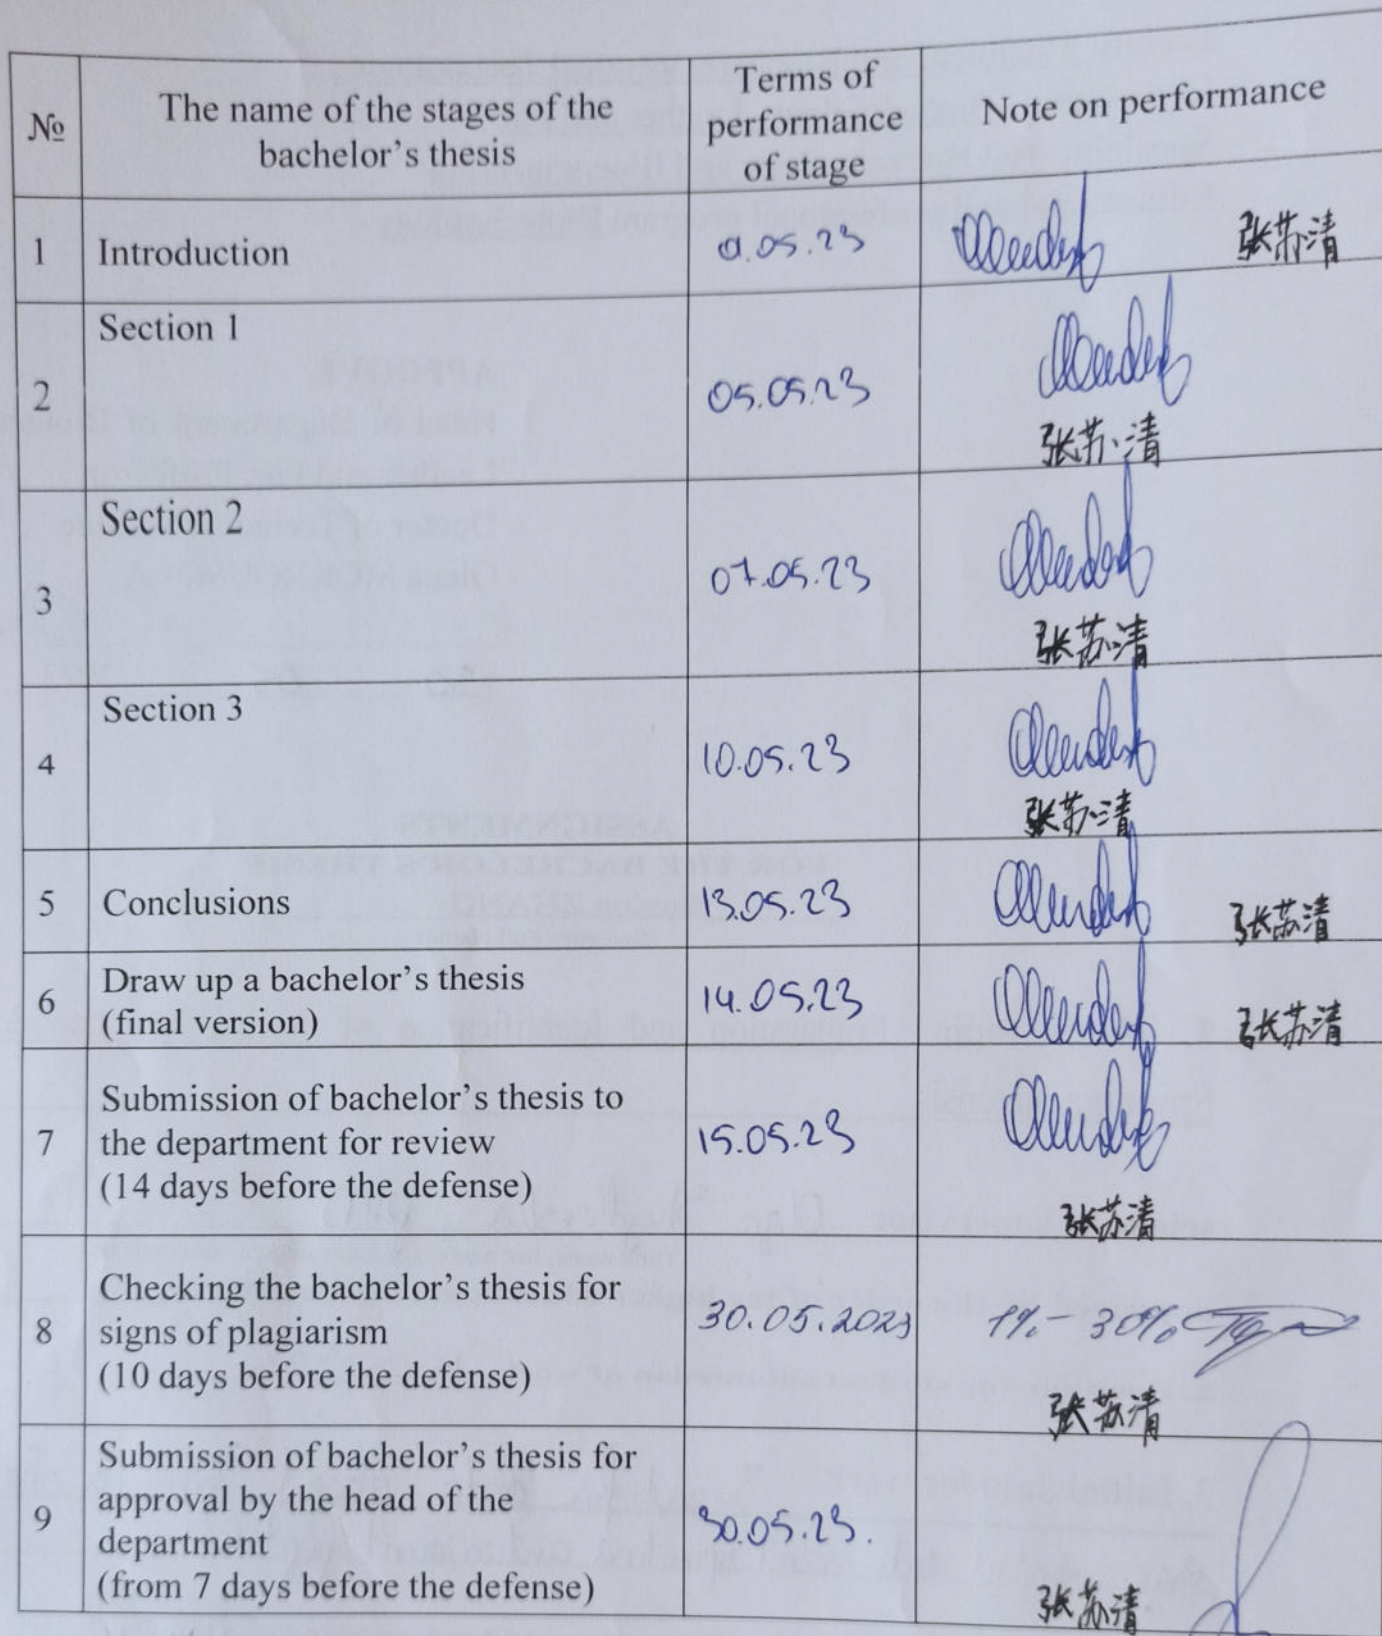 №
The name of the stages of the
bachelor's thesis
Terms of
performance
of stage
Note on performance
1
Introduction
01.05.23
张苏清
2
Section 1
05.05.23
张苏清
3
Section 2
07.05.23
张苏清
4
Section 3
10.05.23
张苏清
5
Conclusions
13.05.23
张苏清
6
Draw up a bachelor's thesis
(final version)
14.05.23
张苏清
7
Submission of bachelor's thesis to
the department for review
(14 days before the defense)
15.05.23
张苏清
8
Checking the bachelor's thesis for
signs of plagiarism
(10 days before the defense)
30.05.2023
30%
张苏清
9
Submission of bachelor's thesis for
approval by the head of the
department
(from 7 days before the defense)
30.05.23.
张苏清